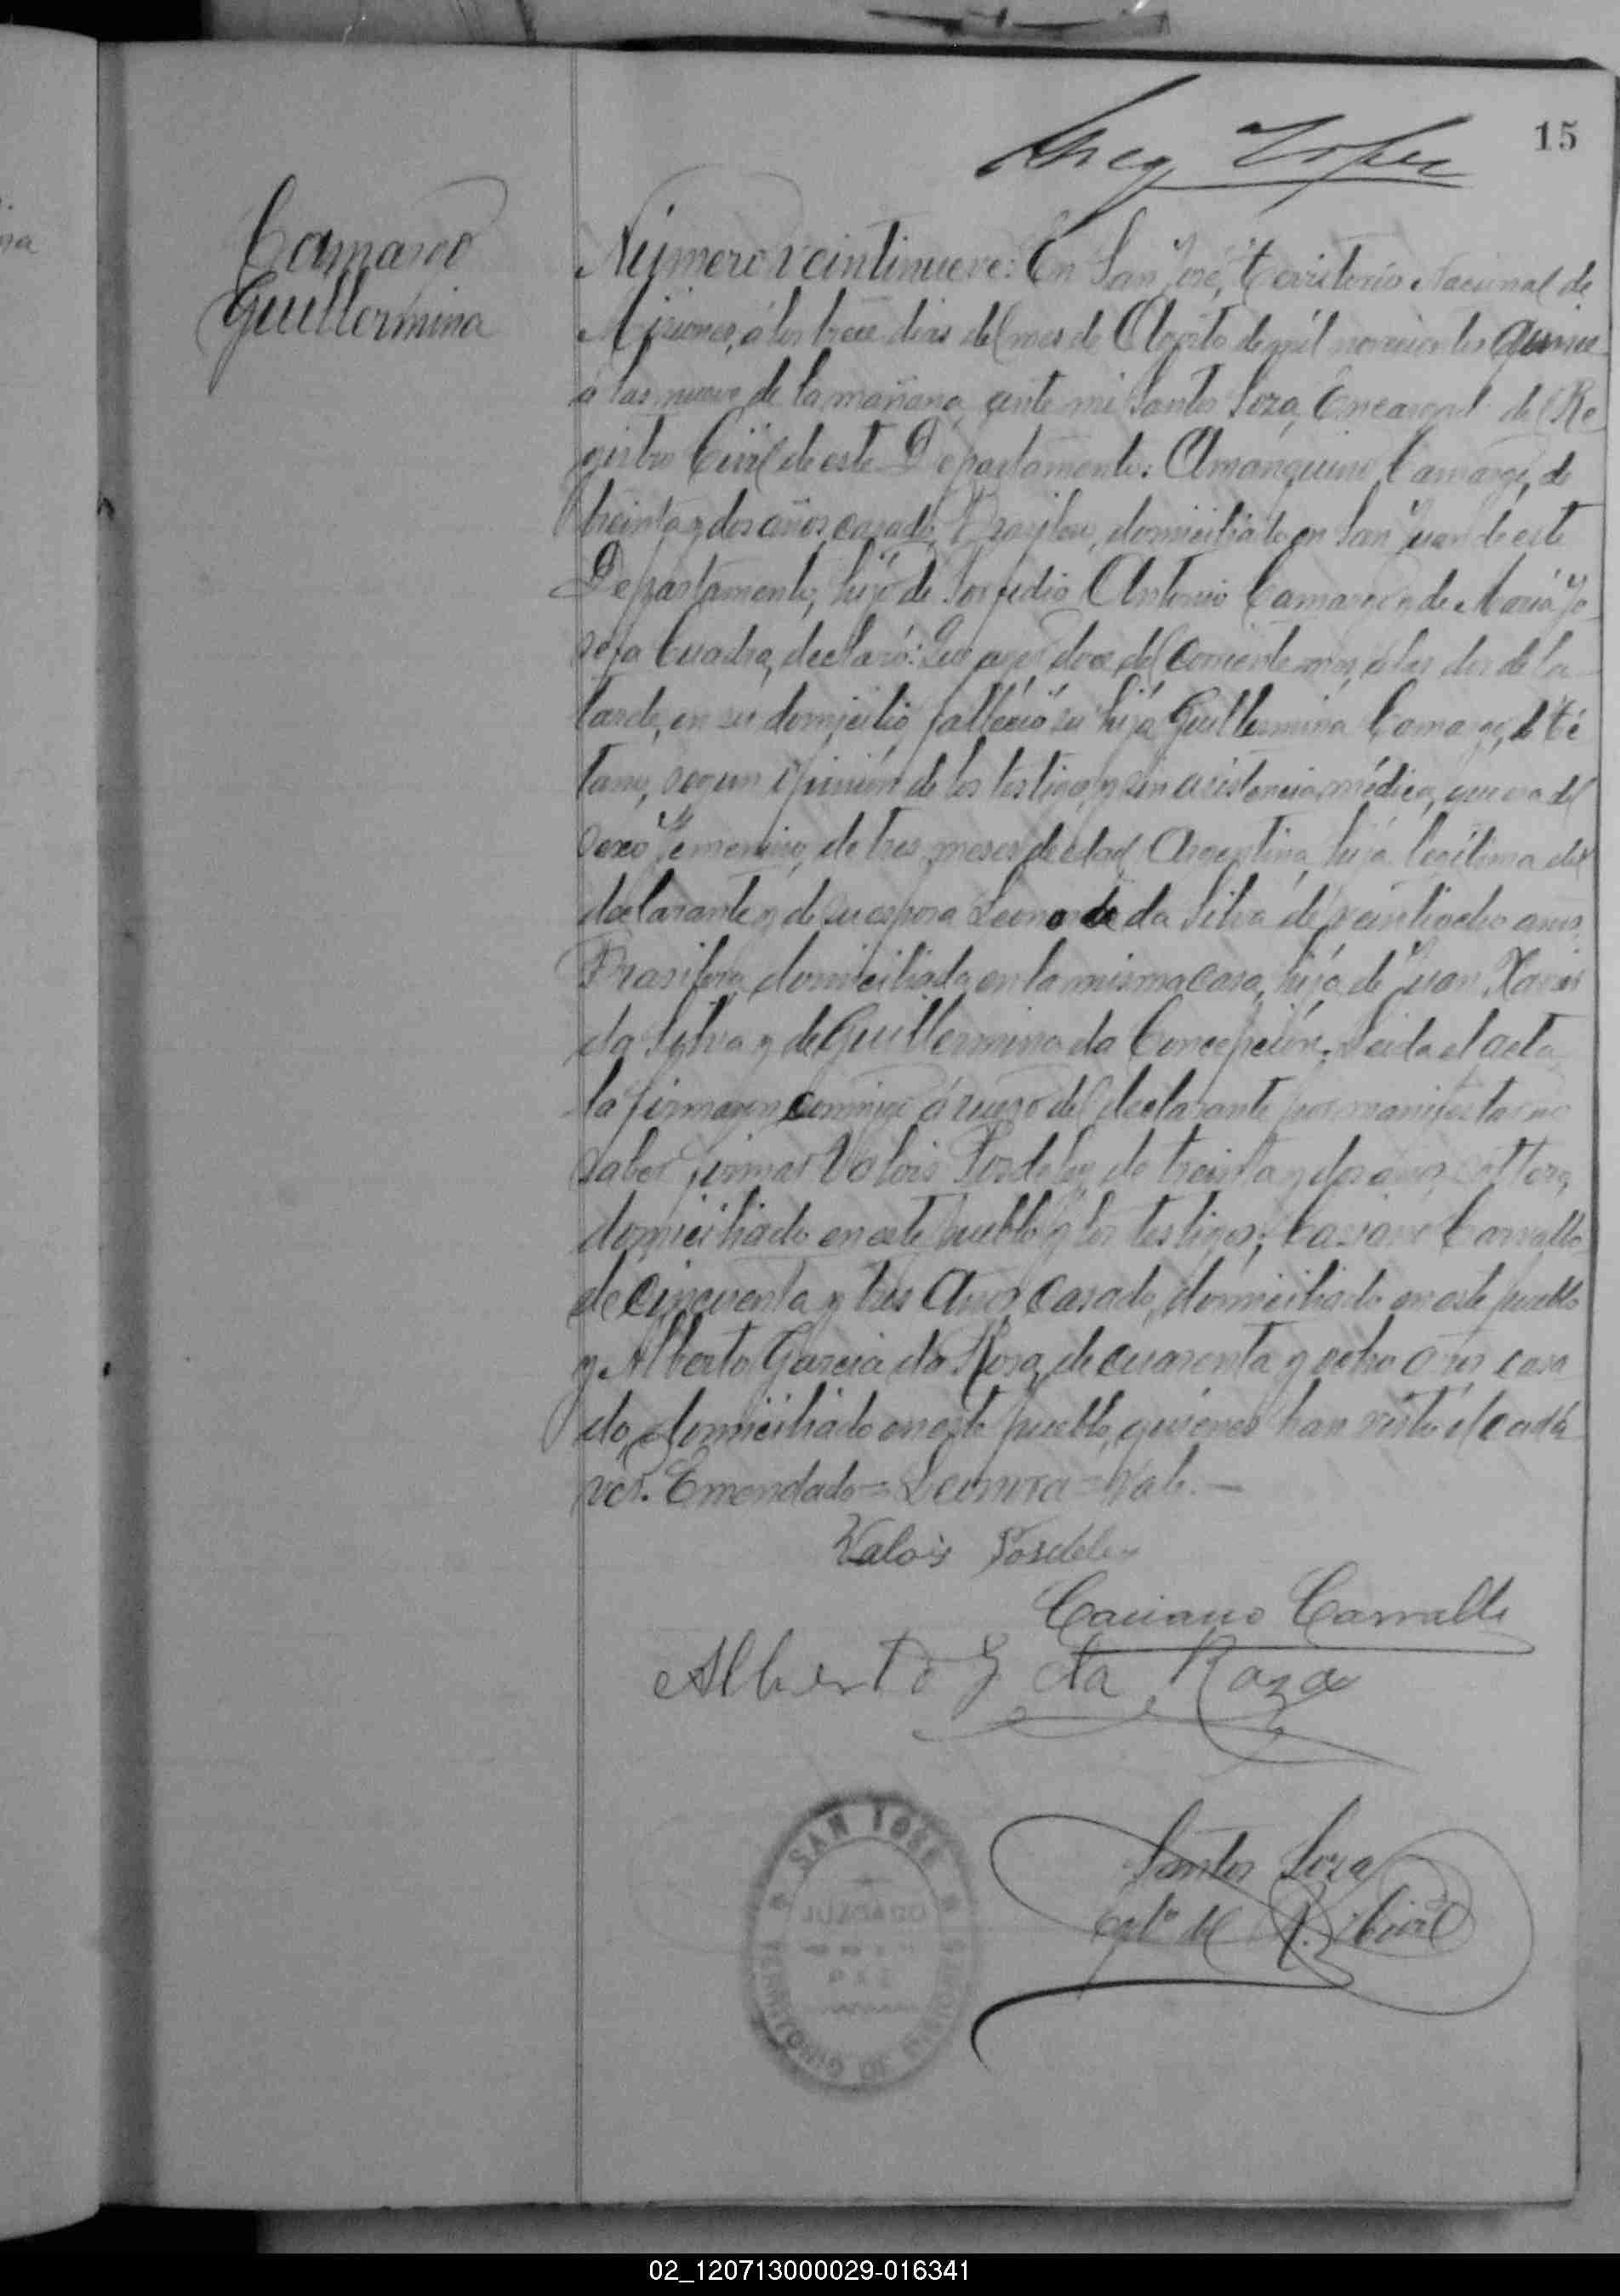 15
Camargo
Guillermina
Número veintinueve: En San José, Territorio Nacional de
Misiones, á los trece dias del mes de Agosto de mil novecientos quince
á las nueve de la mañana, ante mi Santos Soza, Encargado del Re
gistro Civil de este Departamento: Camargo, de
treinta y dos años, casado, Brasilero, domiciliado en San Juan de este
Departamento, hijo de Antonio Camargo y de Maria Jo
sefa Cuadra, declaró: Que ayer doce del corriente mes, á las dos de la
tarde, en su domicilio falleció su hija Guillermina Camargo, de té
tano, segun opinión de los testigos y sin asistencia médica, que era del
sexo femenino, de tres meses de edad, Argentina, hija legítima del
declarante y de su esposa Leonora da Silva de veintiocho años,
Brasilera, domiciliada en la misma casa, hija de Juan Xavier
da Silva y de Guillermina da Concepción. Leida el acta
la firmaron conmigo á ruego del declarante por manifestar no
saber firmar Valois de treinta y dos años, soltero,
domiciliado en este pueblo y los testigos; Casiano Carvallo
de cincuenta y tres años, casado, domiciliado en este pueblo
y Alberto Garcia da Rosa, de cuarenta y ocho años, casa
do, domiciliado en este pueblo, quienes han visto el cadá
ver. Emendado=Leonora=Vale.—
Valois
Caciano Carvallo
Alberto G da Roza
Santos Soza
Egdo del R. Civil
SAN JOSE
JUZGADO
TERRITORIO DE MISIONES
02_120713000029-016341